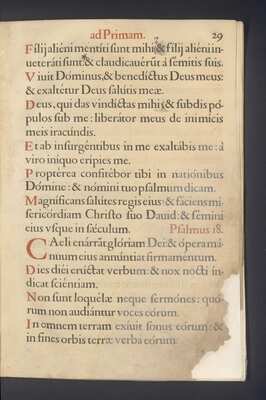 ad Primam. 29
Filij aliéni mentíti sunt mihi, & filij aliéni in-
ueteráti sunt: & claudicauérũt à sémitis suis.
Viuit Dóminus, & benedíctus Deus meus:
& exaltétur Deus salútis meæ.
Deus, qui das vindíctas mihi, & subdis pó-
pulos sub me: liberátor meus de inimícis
meis iracúndis.
Et ab insurgéntibus in me exaltábis me: à
viro iníquo erípies me.
Proptérea confitébor tibi in natiónibus
Dómine: & nómini tuo psalmum dicam.
Magníficans salútes regis eius: & fáciens mi-
sericórdiam Christo suo Dauid: & sémini
eius vsque in sǽculum. Psalmus 18.
CAeli enárrãt glóriam Dei: & ópera má-
nuum eius annúntiat firmaméntum.
Dies diéi erúctat verbum: & nox nocti ín-
dicat sciéntiam.
Non sunt loquélæ neque sermónes: quó-
rum non audiántur voces eórum.
In omnem terram exíuit sonus eórum: &
in fines orbis terræ verba eórum: